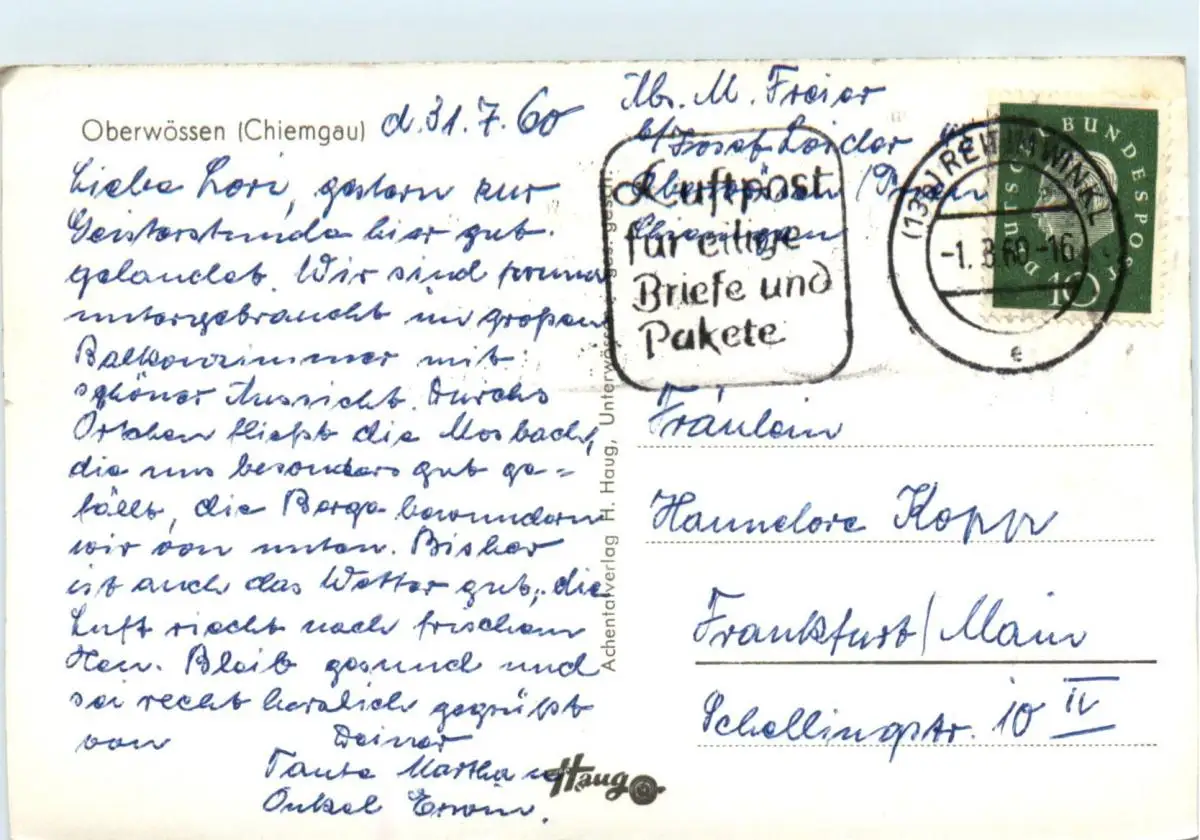 Oberwössen (Chiemgau) d. 31.7.60
Liebe Lore, gestern zur
Geisterstunde hier gut
gelandet. Wir sind prima
untergebracht im großen
Balkonzimmer mit
schöner Aussicht. Durchs
Örtchen fließt die Mosbach,
die uns besonders gut ge=
fällt, die Berge bewundern
wir von unten. Bisher
ist auch das Wetter gut, die
Luft riecht nach frischem
Heu. Bleib gesund und
sei recht herzlich gegrüßt
von Deiner
Tante Martha u
Onkel Erwin.
Abs. M. Freier
b/Josef Loider
Oberwössen
Chiemgau
Luftpost
für eilige
Briefe und
Pakete
(13b) REIT IM WINKL
-1. 8.60-16
e
DEUTSCHE BUNDESPOST
10
Achentalverlag H. Haug, Unterwössen ges. gesch.
Fräulein
Hannelore Kopp
Frankfurt/Main
Schellingstr. 10 II
Haug